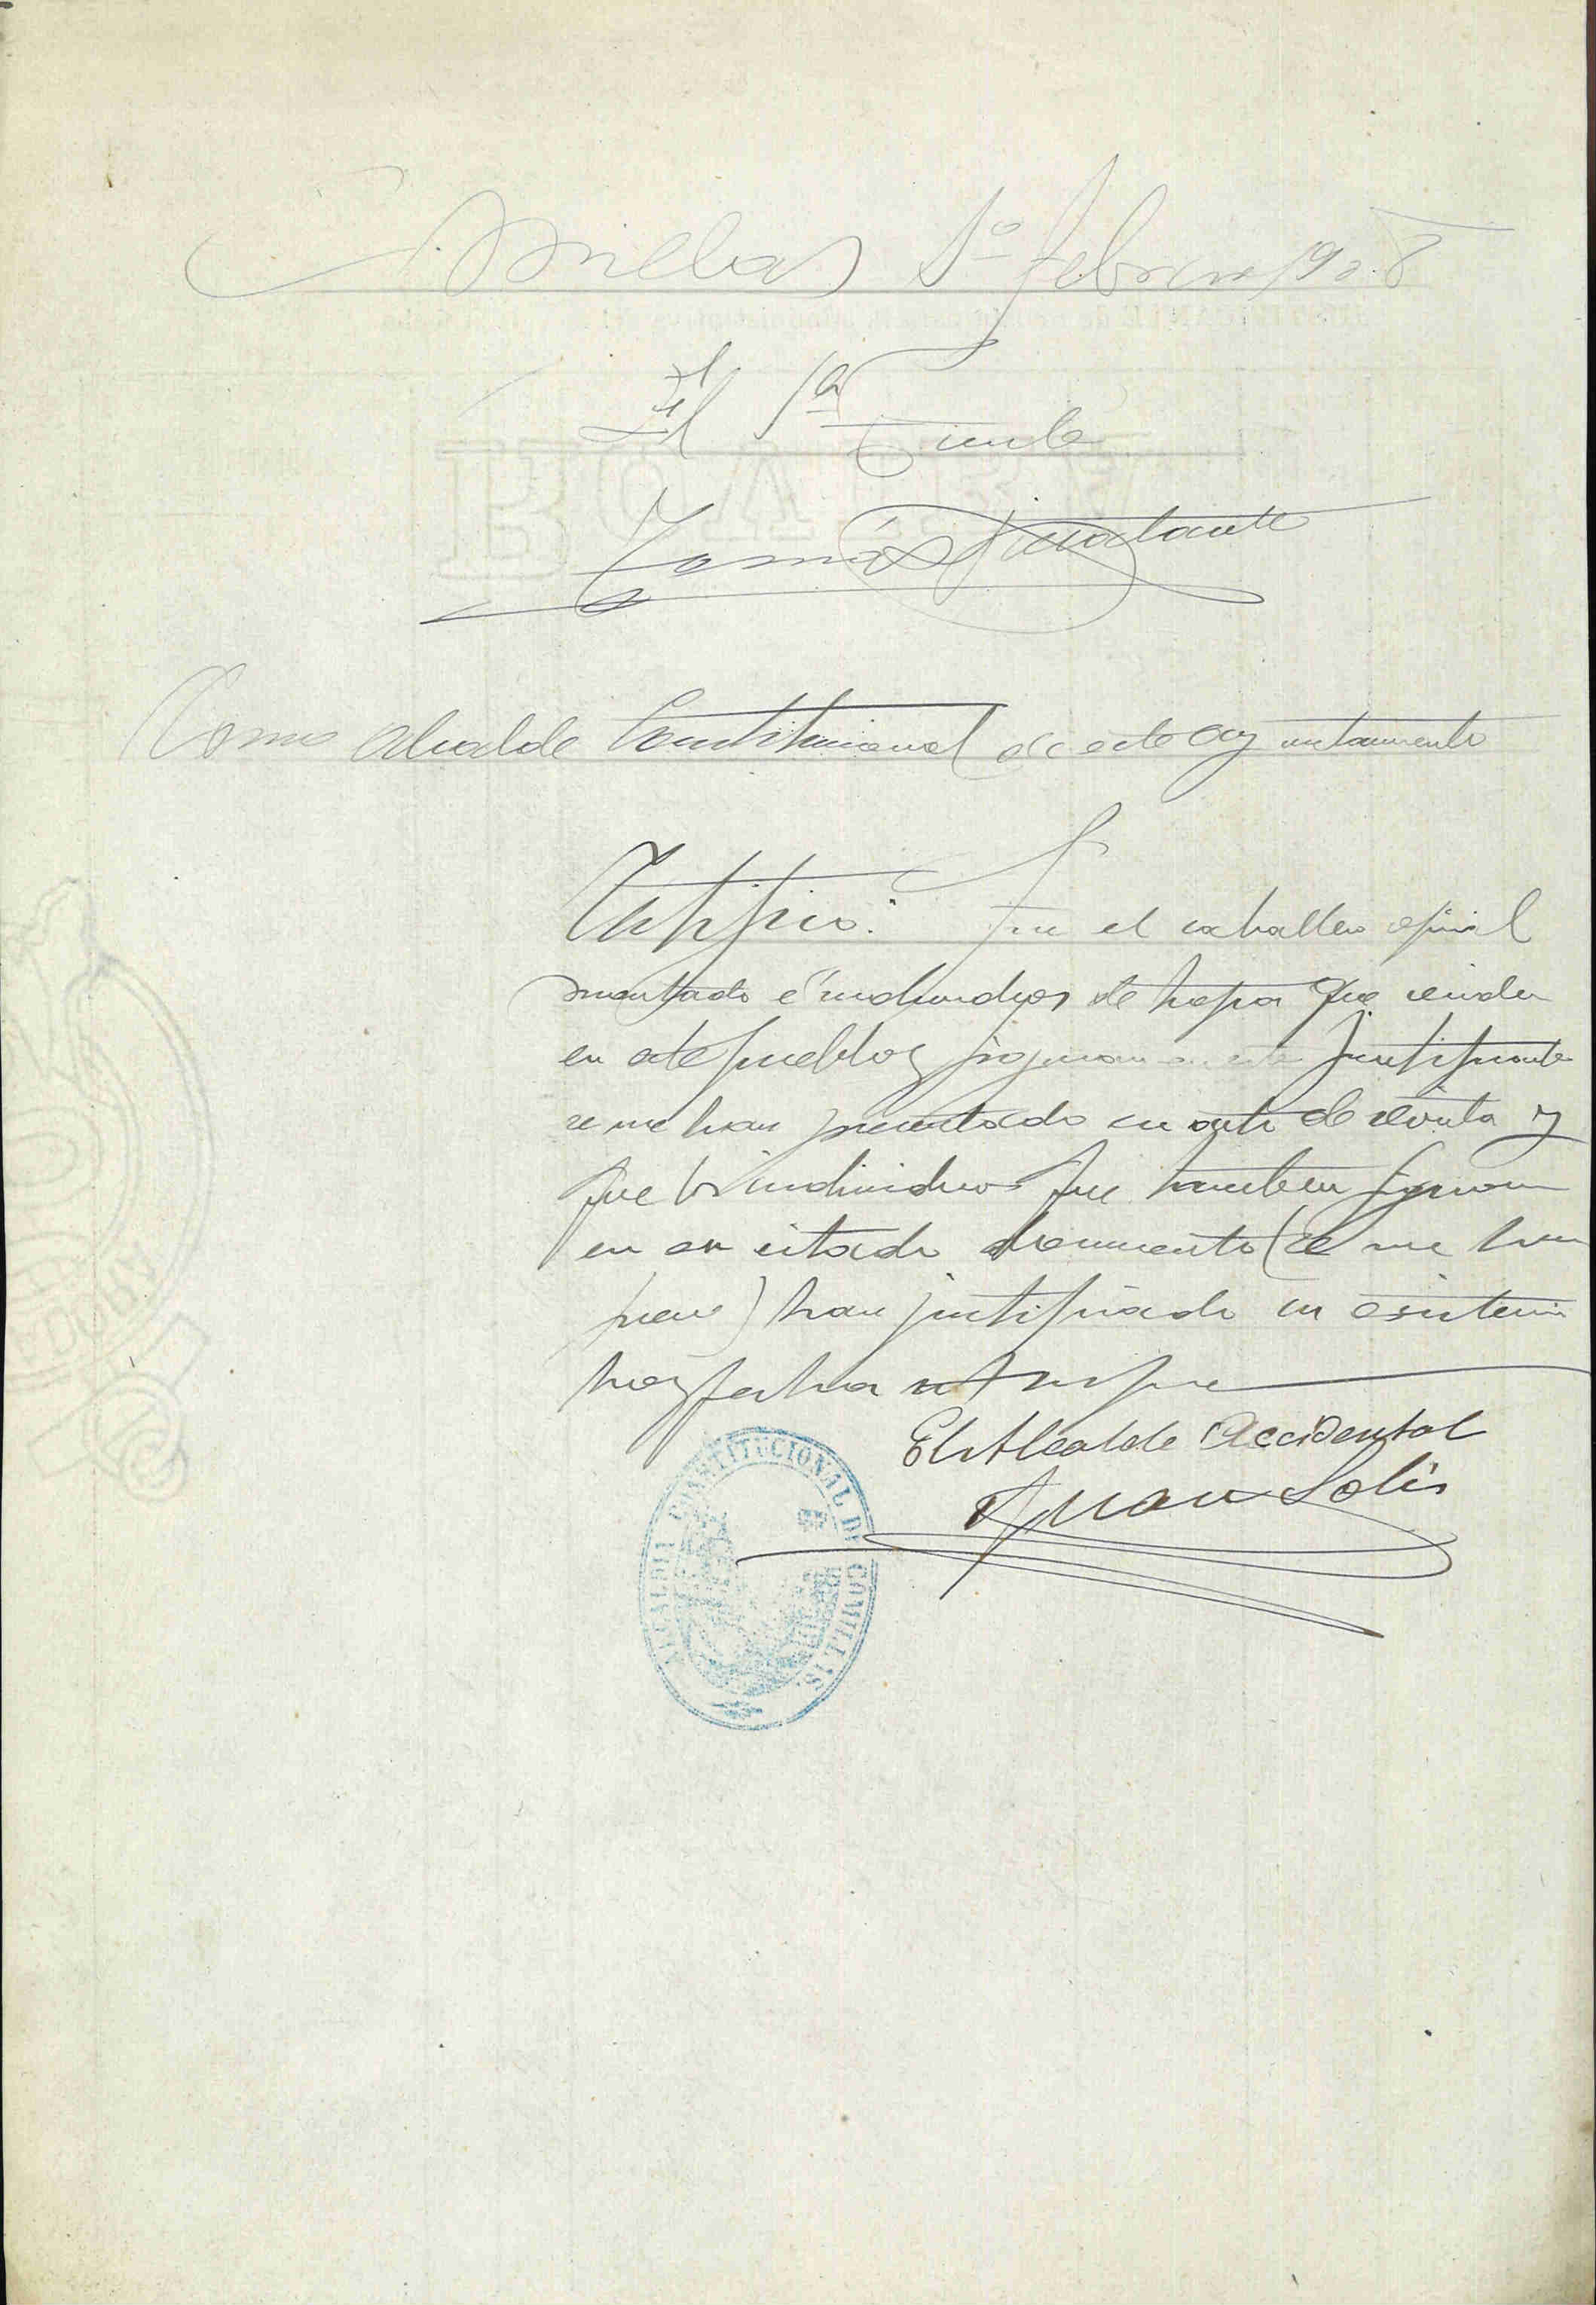 Comillas 1º febrero 1908
El 1er Tente
Tomás
Como Alcalde Constitucional de este ayuntamiento
Certifico: Que el caballero oficial
montado é individuos de tropa que residen
en este pueblo y figuran en este justificante
se me han presentado en acto de revista y
que los individuos que tambien figuran
en en citado documento
han justificado su existencia
hoy fecha ut supra
El Alcalde Accidental
Juan Solis
ALCALDIA CONSTITUCIONAL DE COMILLAS